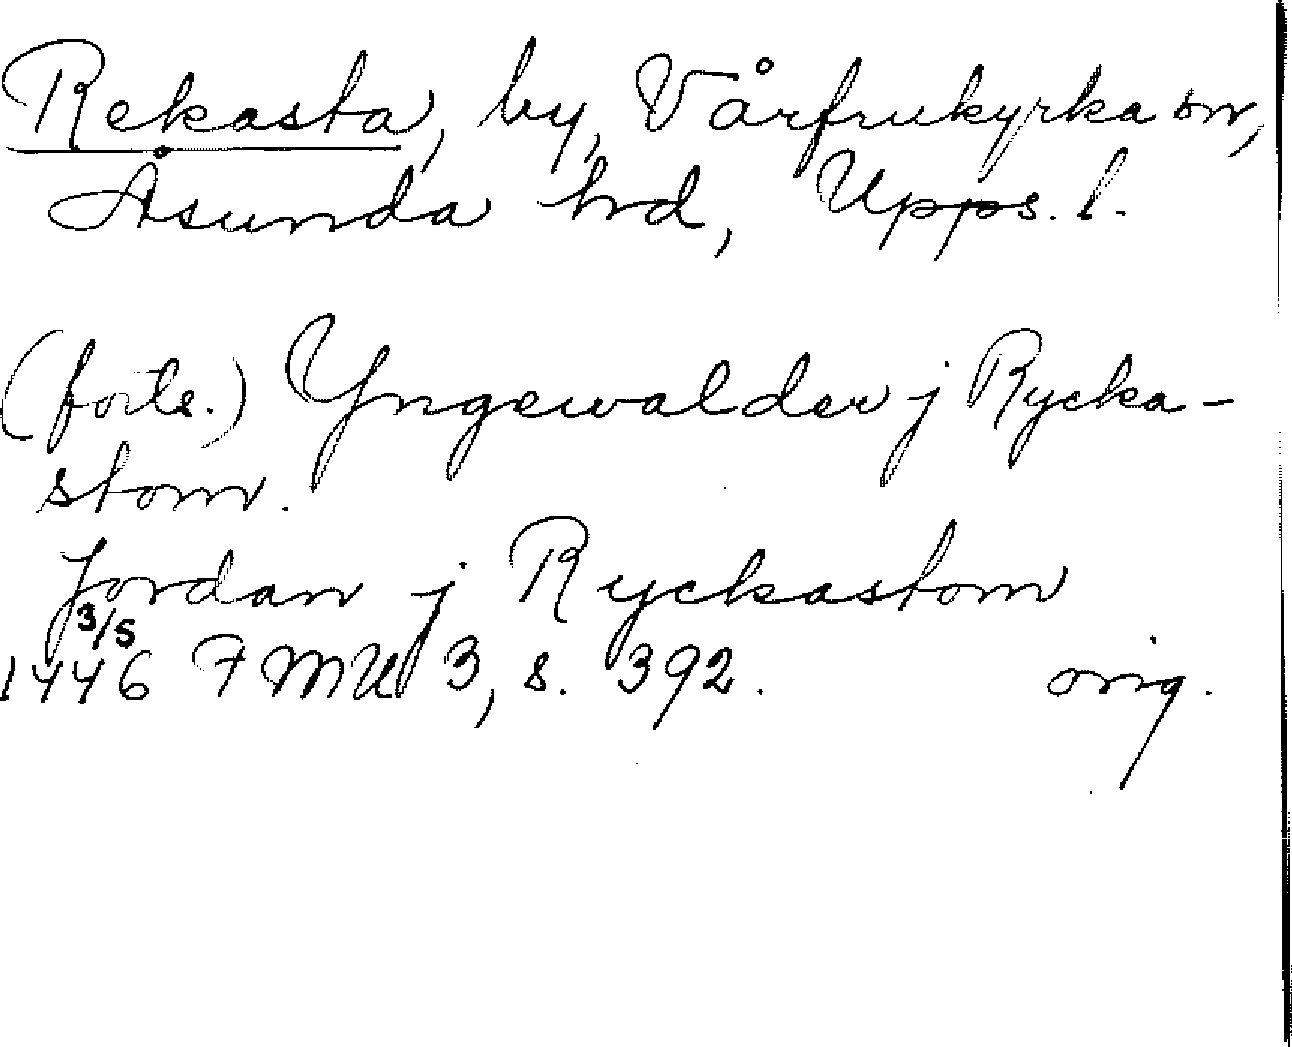 Rekasta, by, Vårfrukyrka sn,
Åsunda hrd, Upps. l.
(forts.) Yngewalder j Rycka-
stom.
Jordan j Ryckastom
3/5
1446 FMU 3, s. 392. orig.